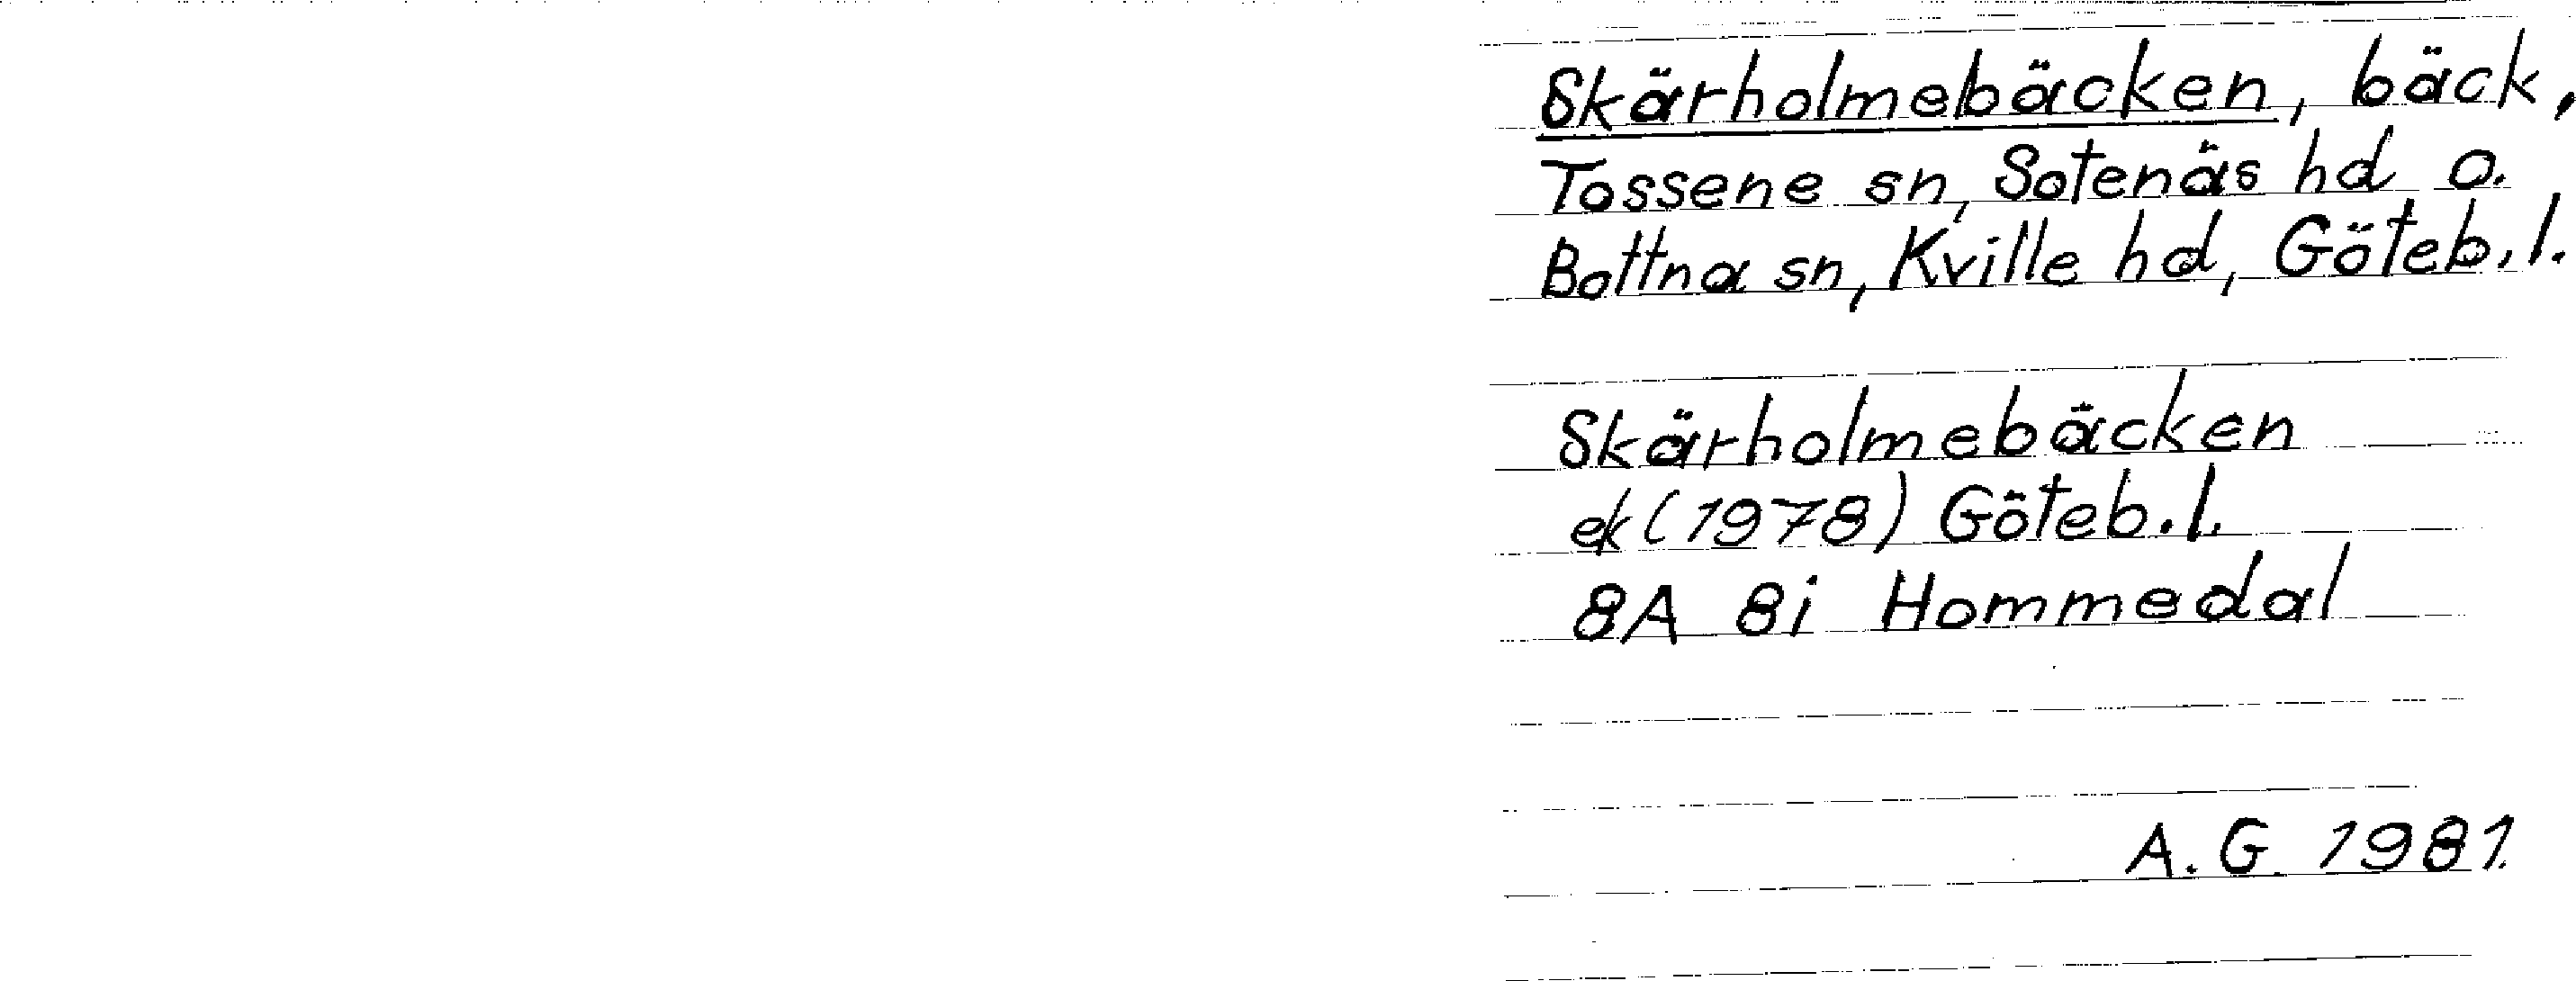 Skärholmebäcken, bäck,
Tossene sn, Sotenäs hd o.
Bottna sn, Kville hd, Göteb.l.
Skärholmebäcken
ek (1978) Göteb.l.
8A 8i Hommedal
A.G. 1981.